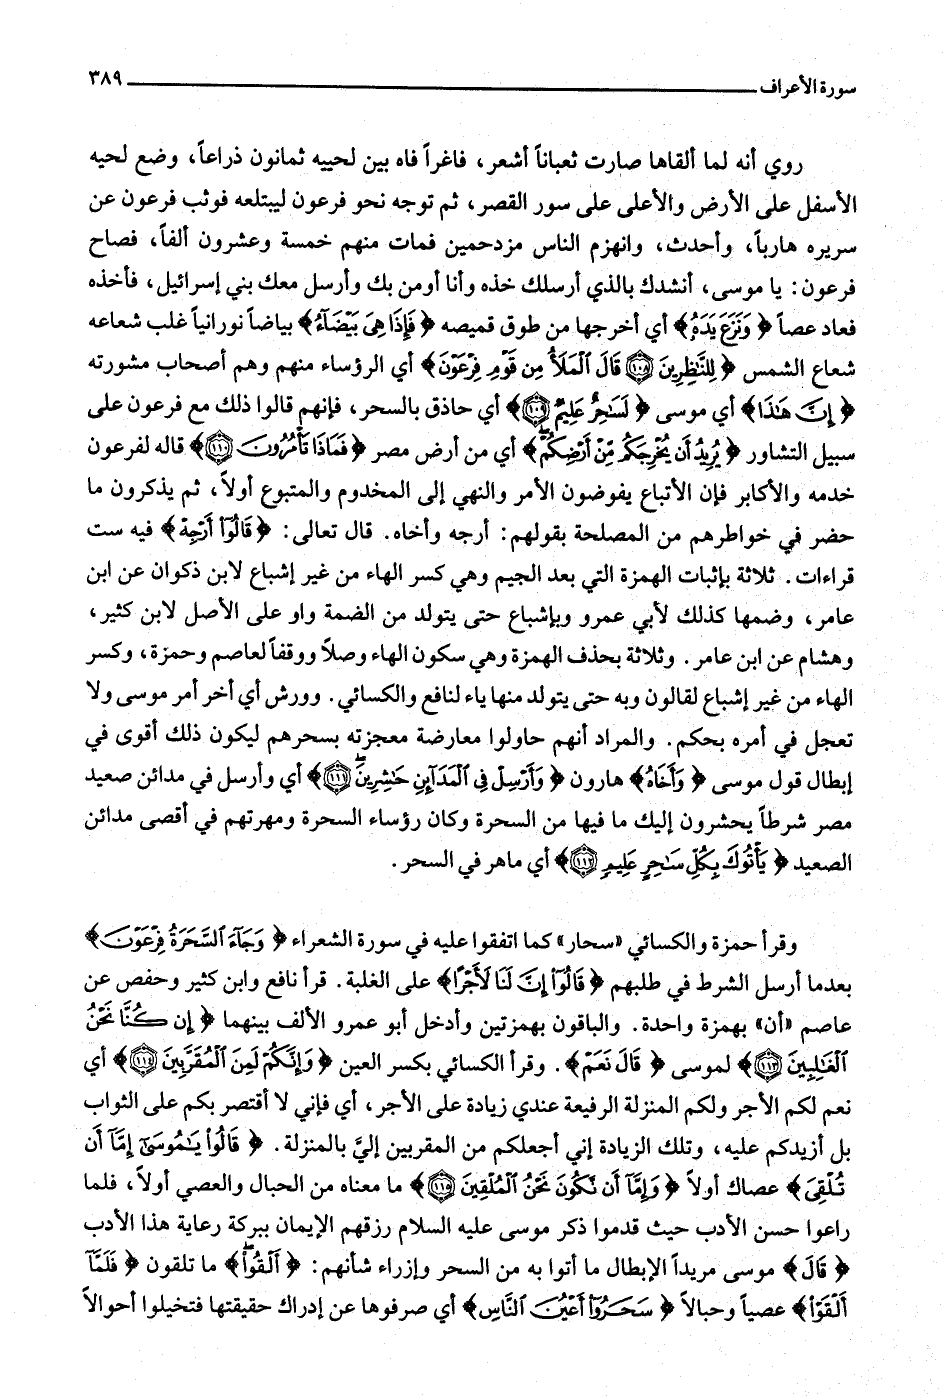 سورة الأعراف ٣٨٩
روي أنه لما ألقاها صارت ثعباناً أشعر، فاغراً فاه بين لحييه ثمانون ذراعاً، وضع لحيه
الأسفل على الأرض والأعلى على سور القصر، ثم توجه نحو فرعون ليبتلعه فوثب فرعون عن
سريره هارباً، وأحدث، وانهزم الناس مزدحمين فمات منهم خمسة وعشرون ألفاً، فصاح
فرعون: يا موسى، أنشدك بالذي أرسلك خذه وأنا أومن بك وأرسل معك بني إسرائيل، فأخذه
فعاد عصاً ﴿ وَنَزَعَ يَدَهُ﴾ أي أخرجها من طوق قميصه ﴿ فَإِذَا هِيَ بَيْضَآءُ﴾ بياضاً نورانياً غلب شعاعه
شعاع الشمس ﴿ لِلنَّٰظِرِينَ ﴿١٠٨﴾ قَالَ ٱلْمَلَأُ مِن قَوْمِ فِرْعَوْنَ﴾ أي الرؤساء منهم وهم أصحاب مشورته
﴿ إِنَّ هَٰذَا﴾ أي موسى ﴿ لَسَٰحِرٌ عَلِيمٌ ﴿١٠٩﴾﴾ أي حاذق بالسحر، فإنهم قالوا ذلك مع فرعون على
سبيل التشاور ﴿ يُرِيدُ أَن يُخْرِجَكُم مِّنْ أَرْضِكُمْ﴾ أي من أرض مصر ﴿ فَمَاذَا تَأْمُرُونَ ﴿١١٠﴾﴾ قاله لفرعون
خدمه والأكابر فإن الأتباع يفوضون الأمر والنهي إلى المخدوم والمتبوع أولاً، ثم يذكرون ما
حضر في خواطرهم من المصلحة بقولهم: أرجه وأخاه. قال تعالى: ﴿ قَالُوٓا۟ أَرْجِهْ﴾ فيه ست
قراءات. ثلاثة بإثبات الهمزة التي بعد الجيم وهي كسر الهاء من غير إشباع لابن ذكوان عن ابن
عامر، وضمها كذلك لأبي عمرو وبإشباع حتى يتولد من الضمة واو على الأصل لابن كثير،
وهشام عن ابن عامر. وثلاثة بحذف الهمزة وهي سكون الهاء وصلاً ووقفاً لعاصم وحمزة، وكسر
الهاء من غير إشباع لقالون وبه حتى يتولد منها ياء لنافع والكسائي. وورش أي أخر أمر موسى ولا
تعجل في أمره بحكم. والمراد أنهم حاولوا معارضة معجزته بسحرهم ليكون ذلك أقوى في
إبطال قول موسى ﴿ وَأَخَاهُ﴾ هارون ﴿ وَأَرْسِلْ فِى ٱلْمَدَآئِنِ حَٰشِرِينَ ﴿١١١﴾﴾ أي وأرسل في مدائن صعيد
مصر شرطاً يحشرون إليك ما فيها من السحرة وكان رؤساء السحرة ومهرتهم في أقصى مدائن
الصعيد ﴿ يَأْتُوكَ بِكُلِّ سَٰحِرٍ عَلِيمٍ ﴿١١٢﴾﴾ أي ماهر في السحر.
وقرأ حمزة والكسائي «سحار» كما اتفقوا عليه في سورة الشعراء ﴿ وَجَآءَ ٱلسَّحَرَةُ فِرْعَوْنَ﴾
بعدما أرسل الشرط في طلبهم ﴿ قَالُوٓا۟ إِنَّ لَنَا لَأَجْرًا﴾ على الغلبة. قرأ نافع وابن كثير وحفص عن
عاصم «أن» بهمزة واحدة. والباقون بهمزتين وأدخل أبو عمرو الألف بينهما ﴿ إِن كُنَّا نَحْنُ
ٱلْغَٰلِبِينَ ﴿١١٣﴾﴾ لموسى ﴿ قَالَ نَعَمْ﴾. وقرأ الكسائي بكسر العين ﴿ وَإِنَّكُمْ لَمِنَ ٱلْمُقَرَّبِينَ ﴿١١٤﴾﴾ أي
نعم لكم الأجر ولكم المنزلة الرفيعة عندي زيادة على الأجر، أي فإني لا أقتصر بكم على الثواب
بل أزيدكم عليه، وتلك الزيادة إني أجعلكم من المقربين إليَّ بالمنزلة. ﴿ قَالُوا۟ يَٰمُوسَىٰٓ إِمَّآ أَن
تُلْقِىَ﴾ عصاك أولاً ﴿ وَإِمَّآ أَن نَّكُونَ نَحْنُ ٱلْمُلْقِينَ ﴿١١٥﴾﴾ ما معناه من الحبال والعصي أولاً، فلما
راعوا حسن الأدب حيث قدموا ذكر موسى عليه السلام رزقهم الإيمان ببركة رعاية هذا الأدب
﴿ قَالَ﴾ موسى مريداً الإبطال ما أتوا به من السحر وإزراء شأنهم: ﴿ أَلْقُوا۟﴾ ما تلقون ﴿ فَلَمَّآ
أَلْقَوْا۟﴾ عصياً وحبالاً ﴿ سَحَرُوٓا۟ أَعْيُنَ ٱلنَّاسِ﴾ أي صرفوها عن إدراك حقيقتها فتخيلوا أحوالاً